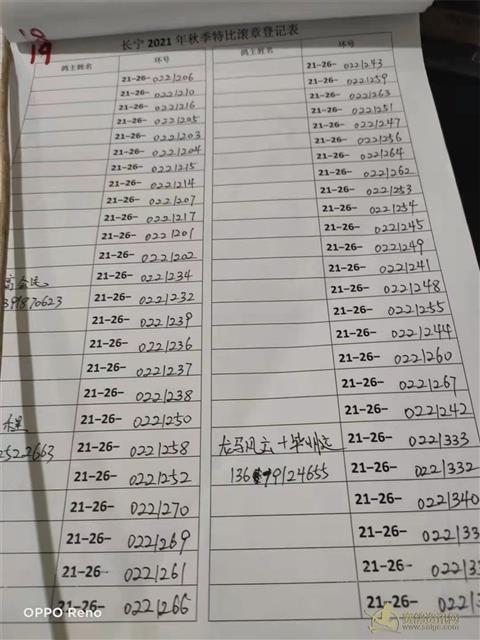 19
长宁 2021 年秋季特比滚章登记表
鸽主姓名 环号
21-26- 0221206
21-26- 0221210
21-26- 0221216
21-26- 0221205
21-26- 0221203
21-26- 0221204
21-26- 0221215
21-26- 0221214
21-26- 0221207
21-26- 0221217
21-26- 0221201
21-26- 0221202
21-26- 0221234
391870623 21-26- 0221232
21-26- 0221239
21-26- 0221236
21-26- 0221237
21-26- 0221238
21-26- 0221250
2522663 21-26- 0221258
21-26- 0221252
21-26- 0221270
21-26- 0221269
21-26- 0221261
21-26- 0221266
鸽主姓名 环号
21-26- 0221243
21-26- 0221259
21-26- 0221263
21-26- 0221251
21-26- 0221247
21-26- 0221256
21-26- 0221264
21-26- 0221262
21-26- 0221253
21-26- 0221254
21-26- 0221245
21-26- 0221249
21-26- 0221241
21-26- 0221248
21-26- 0221255
21-26- 0221244
21-26- 0221260
21-26- 0221267
21-26- 0221242
龙马风云+毕小 21-26- 0221333
136 99124655 21-26- 0221332
21-26- 0221340
21-26- 022133
21-26- 022133
21-26- 02213
OPPO Reno
www.saige.com